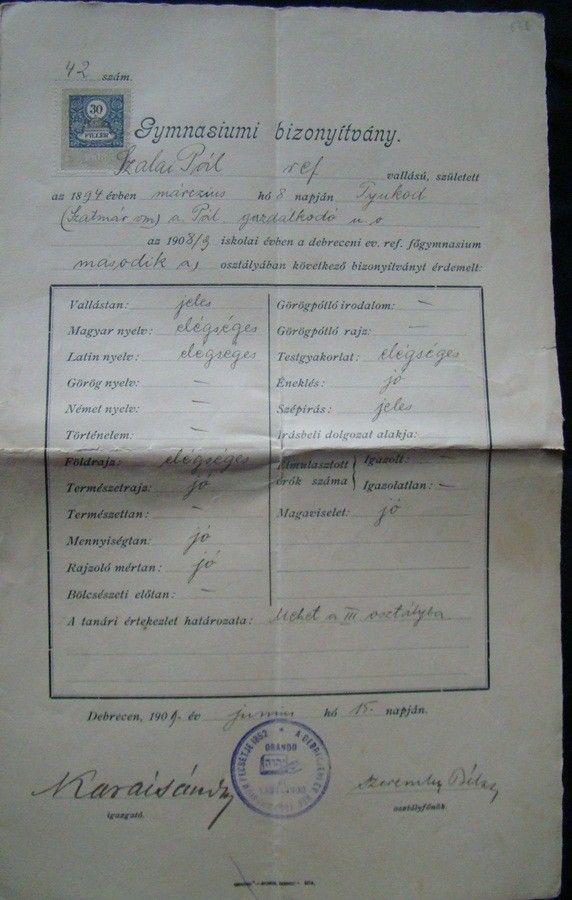 42 szám.
30
FILLÉR
Gymnasiumi bizonyítvány.
Szalai Pál ref vallású, született
az 1894 évben marczius hó 8 napján Tyukod
(Szatmár vm) a Pál gazdálkodó
az 1908/9 iskolai évben a debreceni ev. ref. főgymnasium
második a, osztályában következő bizonyítványt érdemelt:
Vallástan: jeles
Magyar nyelv: elégséges
Latin nyelv: elégséges
Görög nyelv: —
Német nyelv: —
Történelem: —
Földrajz: elégséges
Természetrajz: jó
Természettan: —
Mennyiségtan: jó
Rajzoló mértan: jó
Bölcsészeti előtan: —
Görögpótló irodalom: —
Görögpótló rajz: —
Testgyakorlat: elégséges
Éneklés: jó
Szépirás: jeles
Irásbeli dolgozat alakja:
Elmulasztott órák száma { Igazolt: —
Igazolatlan: —
Magaviselet: jó
A tanári értekezlet határozata: Mehet a III osztályba
Debrecen, 1909. év junius hó 15. napján.
ORANDO
Karai Sándor
igazgató.
Szeremley Béla
osztályfőnök.